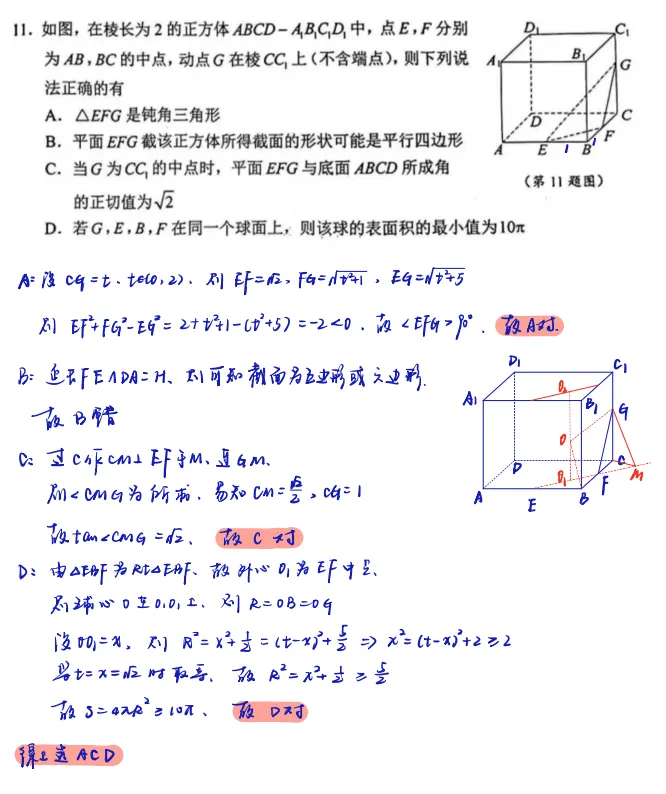 11. 如图,在棱长为2的正方体ABCD-A₁B₁C₁D₁中,点E,F分别
为AB,BC的中点,动点G在棱CC₁上(不含端点),则下列说
法正确的有
A. △EFG是钝角三角形
B. 平面EFG截该正方体所得截面的形状可能是平行四边形
C. 当G为CC₁的中点时,平面EFG与底面ABCD所成角
的正切值为√2
D. 若G,E,B,F在同一个球面上,则该球的表面积的最小值为10π
D₁ C₁
A₁ B₁
G
D C
F
A E 1 B 1
(第11题图)
A: 设CG=t、t∈(0,2). 则 EF=√2, FG=√t²+1, EG=√t²+5
则 EF²+FG²-EG²=2+t²+1-(t²+5)=-2<0. 故<EFG>90°. 故A对.
B: 延长FE∩DA=H、则可知截面为五边形或六边形.
故B错
C: 过C作CM⊥EF于M、连GM.
则<CMG为所求. 易知CM=√2/2, CG=1
故tan<CMG=√2. 故C对
D: 由△EBF为Rt△EBF、故外心O₁为EF中点.
则球心O在O₁O₂上. 则R=OB=OG
设OO₁=x, 则 R²=x²+1/2=(t-x)²+5/2 => x²=(t-x)²+2≥2
当t=x=√2时取等. 故R²=x²+1/2≥5/2
故S=4πR²≥10π、 故D对
综上选ACD
D₁ C₁
A₁ O₂ B₁
G
O
D C M
O₁ F
A E B